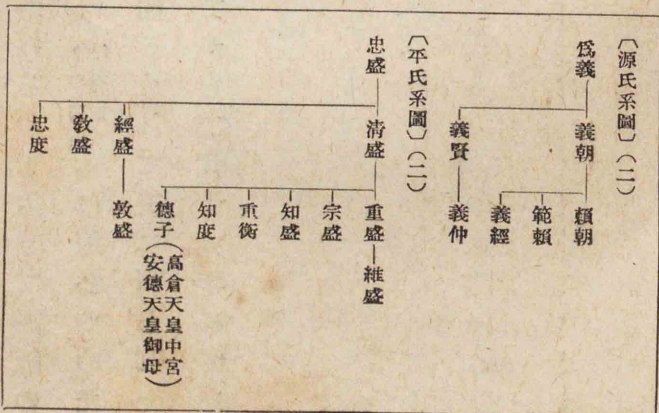 〔源氏系圖〕（二）
爲義
義朝
賴朝
範賴
義經
義賢
義仲
〔平氏系圖〕（二）
忠盛
清盛
重盛
維盛
宗盛
知盛
重衡
知度
德子
（高倉天皇中宮
安德天皇御母）
經盛
敦盛
敎盛
忠度